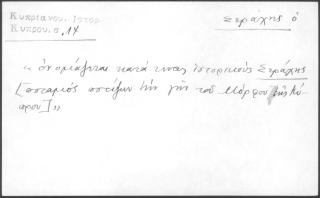 Κυπριανου. Ιστορ.
Κυπρου. σ. 14
Σεράχης ὁ
« ὀνομάζεται κατά τινας ἱστορικούς Σεράχης
[ποταμός ποτίζων τὴν γῆν τοῦ Μόρφου τῆς Κύ-
πρου] »